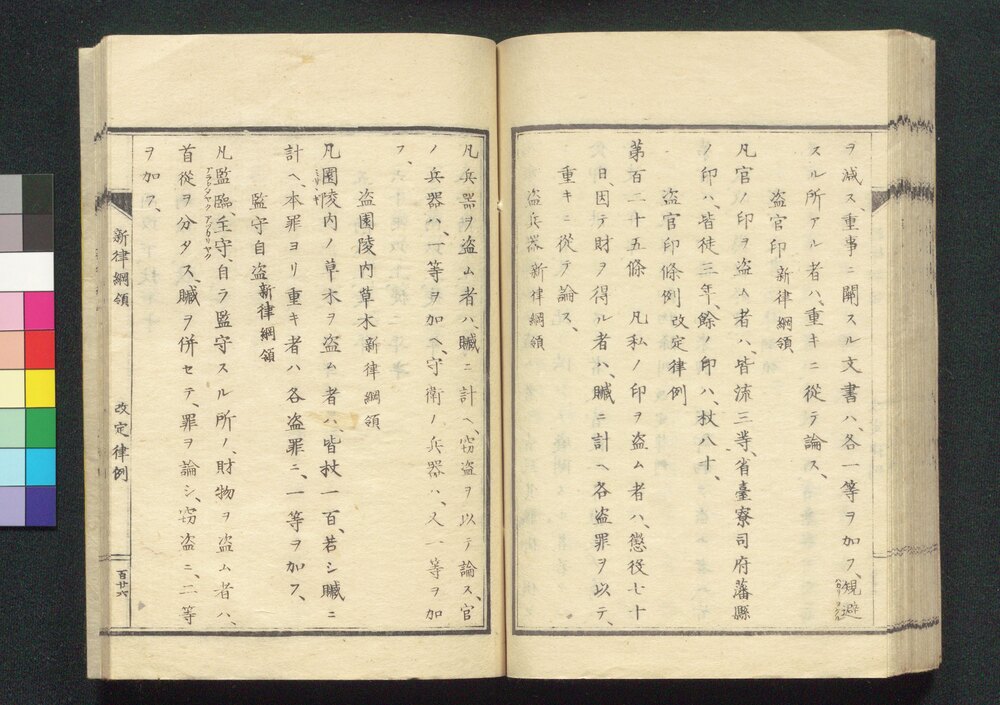 ヲ減ス、重事ニ關スル文書ハ、各一等ヲ加フ、規避
スル所アル者ハ、重キニ從テ論ス、
盗官印 新律綱領
凡官ノ印ヲ盗ム者ハ、皆流三等、省臺寮司府藩縣
ノ印ハ、皆徒三年、餘ノ印ハ、杖八十、
盗官印條例 改定律例
第百二十五條 凡私ノ印ヲ盗ム者ハ、懲役七十
日、因テ財ヲ得ル者ハ、贓ニ計ヘ各盗罪ヲ以テ、
重キニ從テ論ス、
盗兵器 新律綱領
凡兵器ヲ盗ム者ハ、贓ニ計ヘ、窃盗ヲ以テ論ス、官
ノ兵器ハ、一等ヲ加ヘ、守衛ノ兵器ハ、又一等ヲ加
フ、
盗園陵内草木 新律綱領
凡園陵内ノ草木ヲ盗ム者ハ、皆杖一百、若シ贓ニ
計ヘ、本罪ヨリ重キ者ハ各盗罪ニ、一等ヲ加フ、
監守自盗 新律綱領
凡監臨、主守、自ラ監守スル所ノ、財物ヲ盗ム者ハ、
首從ヲ分タス、贓ヲ併セテ、罪ヲ論シ、窃盗ニ、二等
ヲ加フ、
新律綱領
改定律例
百廿六